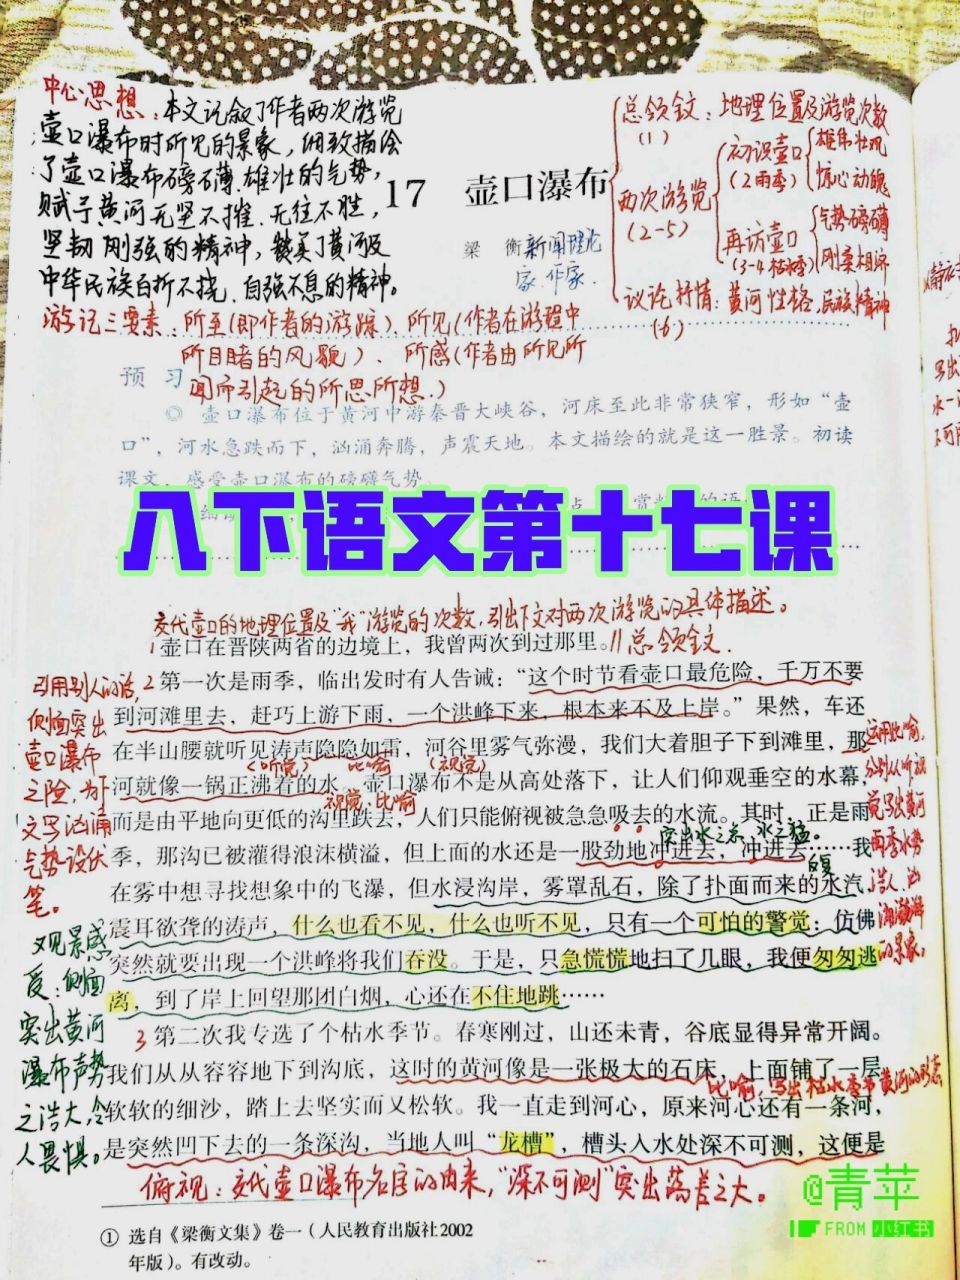 中心思想：本文记叙了作者两次游览
壶口瀑布时所见的景象，细致描绘
了壶口瀑布磅礴、雄壮的气势，
赋予黄河无坚不摧、无往不胜，
坚韧刚强的精神，赞美了黄河及
中华民族百折不挠、自强不息的精神。
17 壶口瀑布
梁 衡 新闻理论
家、作家.
总领全文：地理位置及游览次数
(1)
两次游览
(2-5)
初识壶口
(2雨季)
雄伟壮观
惊心动魄
再访壶口
(3-4枯水季)
气势磅礴
刚柔相济
议论抒情：黄河性格、民族精神
(6)
游记三要素：所至(即作者的游踪)、所见(作者在游程中
所目睹的风貌)、所感(作者由所见所
闻而引起的所思所想.)
预 习
◎ 壶口瀑布位于黄河中游秦晋大峡谷，河床至此非常狭窄，形如“壶
口”，河水急跌而下，汹涌奔腾，声震天地。本文描绘的就是这一胜景。初读
课文，感受壶口瀑布的磅礴气势。
八下语文第十七课
交代壶口的地理位置及“我”游览的次数，引出下文对两次游览的具体描述。
1 壶口在晋陕两省的边境上，我曾两次到过那里。//总领全文.
2 第一次是雨季，临出发时有人告诫：“这个时节看壶口最危险，千万不要
到河滩里去，赶巧上游下雨，一个洪峰下来，根本来不及上岸。”果然，车还
在半山腰就听见涛声隐隐如雷，河谷里雾气弥漫，我们大着胆子下到滩里，那
(听觉) 比喻 (视觉)
河就像一锅正沸着的水。壶口瀑布不是从高处落下，让人们仰观垂空的水幕，
视觉、比喻
而是由平地向更低的沟里跌去，人们只能俯视被急急吸去的水流。其时，正是雨
突出水之急，水之猛。
季，那沟已被灌得浪沫横溢，但上面的水还是一股劲地冲进去，冲进去……我
反复
在雾中想寻找想象中的飞瀑，但水浸沟岸，雾罩乱石，除了扑面而来的水汽，
震耳欲聋的涛声，什么也看不见，什么也听不见，只有一个可怕的警觉：仿佛
突然就要出现一个洪峰将我们吞没。于是，只急慌慌地扫了几眼，我便匆匆逃
离，到了岸上回望那团白烟，心还在不住地跳……
引用别人的话，
侧面突出
壶口瀑布
之险，为下
文写汹涌
气势设伏
笔。
运用比喻，
分别从听视
觉写出黄河
雨季水势
浩大、汹
涌澎湃
的景象。
又观景感
受：侧面
突出黄河
瀑布声势
之浩大，令
人畏惧。
3 第二次我专选了个枯水季节。春寒刚过，山还未青，谷底显得异常开阔。
我们从从容容地下到沟底，这时的黄河像是一张极大的石床，上面铺了一层
比喻，写出枯水季节黄河的形态
软软的细沙，踏上去坚实而又松软。我一直走到河心，原来河心还有一条河，
是突然凹下去的一条深沟，当地人叫“龙槽”，槽头入水处深不可测，这便是
俯视：交代壶口瀑布名字的由来，“深不可测”突出落差之大。
① 选自《梁衡文集》卷一（人民教育出版社2002
年版）。有改动。
@青苹
FROM 小红书